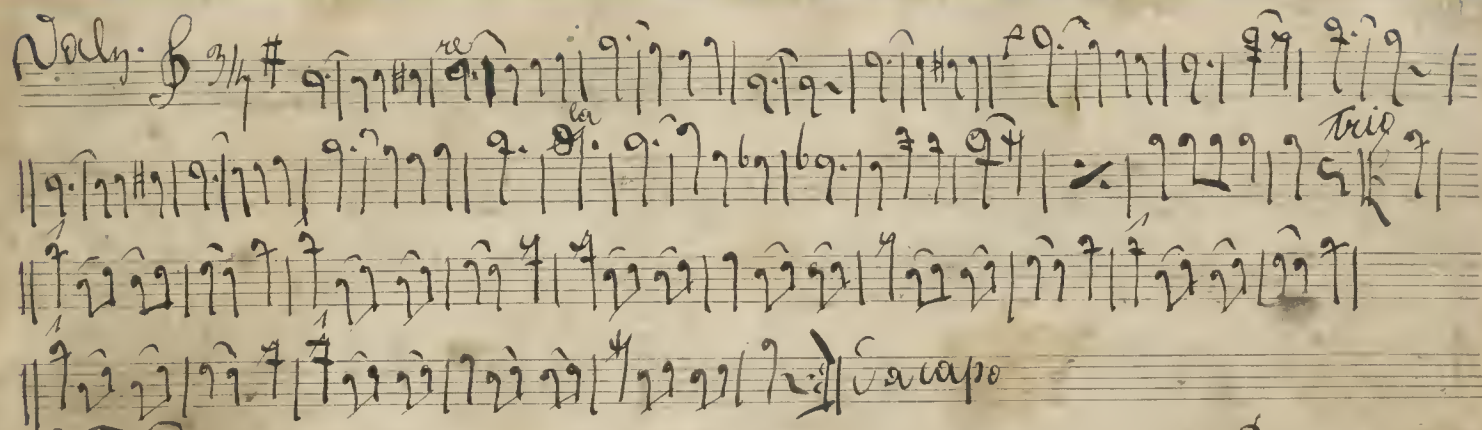 Valz. 3/4
re
la
Trio
Da capo